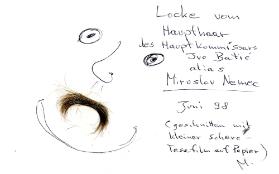 Locke vom
Haupthaar
des Hauptkommissars
Ivo Batic
alias
Miroslav Nemec
Juni 98
(geschnitten mit
kleiner Schere -
Tesafilm auf Papier)
M.